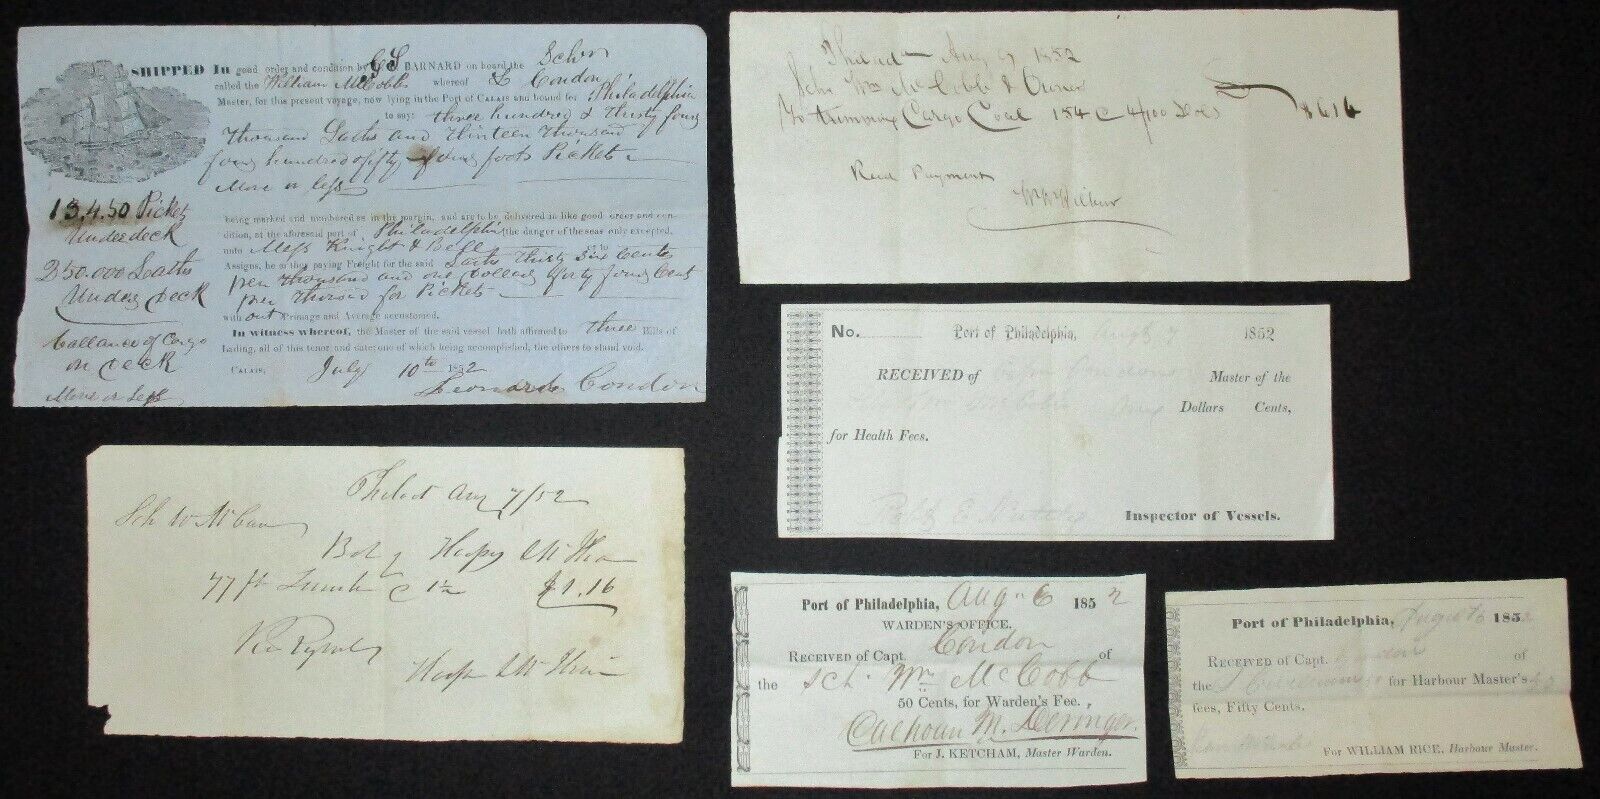 SHIPPED In good order and condition by G S BARNARD on board the Schr
called the William McCobb whereof L Condon
Master, for this present voyage, now lying in the Port of CALAIS and bound for Philadelphia
to say: three hundred & thirty four
thousand Laths and thirteen thousand
four hundred & fifty four foots Pickets
More or less
13,450 Pickets
Underdeck
250.000 Laths
Under Deck
ballance of Cargo
on deck
More or Less
being marked and numbered as in the margin, and are to be delivered in like good order and con-
dition, at the aforesaid port of Philadelphia (the danger of the seas only excepted,
unto Mess Knight & Bell or to
Assigns, he or they paying Freight for the said Laths thirty six Cents
per thousand and one Dollars forty four Cent
per thousand for Pickets
with out Primage and Average accustomed.
In witness whereof, the Master of the said vessel hath affirmed to three Bills of
Lading, all of this tenor and date; one of which being accomplished, the others to stand void.
CALAIS, July 10th 1852
Leonard Condon
Philad Aug 7 1852
Schr Wm McCobb & Owner
To trimming Cargo Coal 154 @ 4/100 $6 16
Recd Payment
Wilbur
No. Port of Philadelphia, Augt 7 1852
RECEIVED of Capn Condon Master of the
McCobb Dollars Cents,
for Health Fees.
Inspector of Vessels.
Philad Aug 7/52
Sch W McCobb
Bot of
77 ft @ 1½ $1.16
Port of Philadelphia, Aug 6 1852
WARDEN'S OFFICE.
RECEIVED of Capt. Condon of
the Sch. Wm McCobb
50 Cents, for Warden's Fee.
Calhoun M. Derringer
For J. KETCHAM, Master Warden.
Port of Philadelphia, August 6 1852
RECEIVED of Capt. Condon of
the for Harbour Master's
fees, Fifty Cents.
For WILLIAM RICE, Harbour Master.